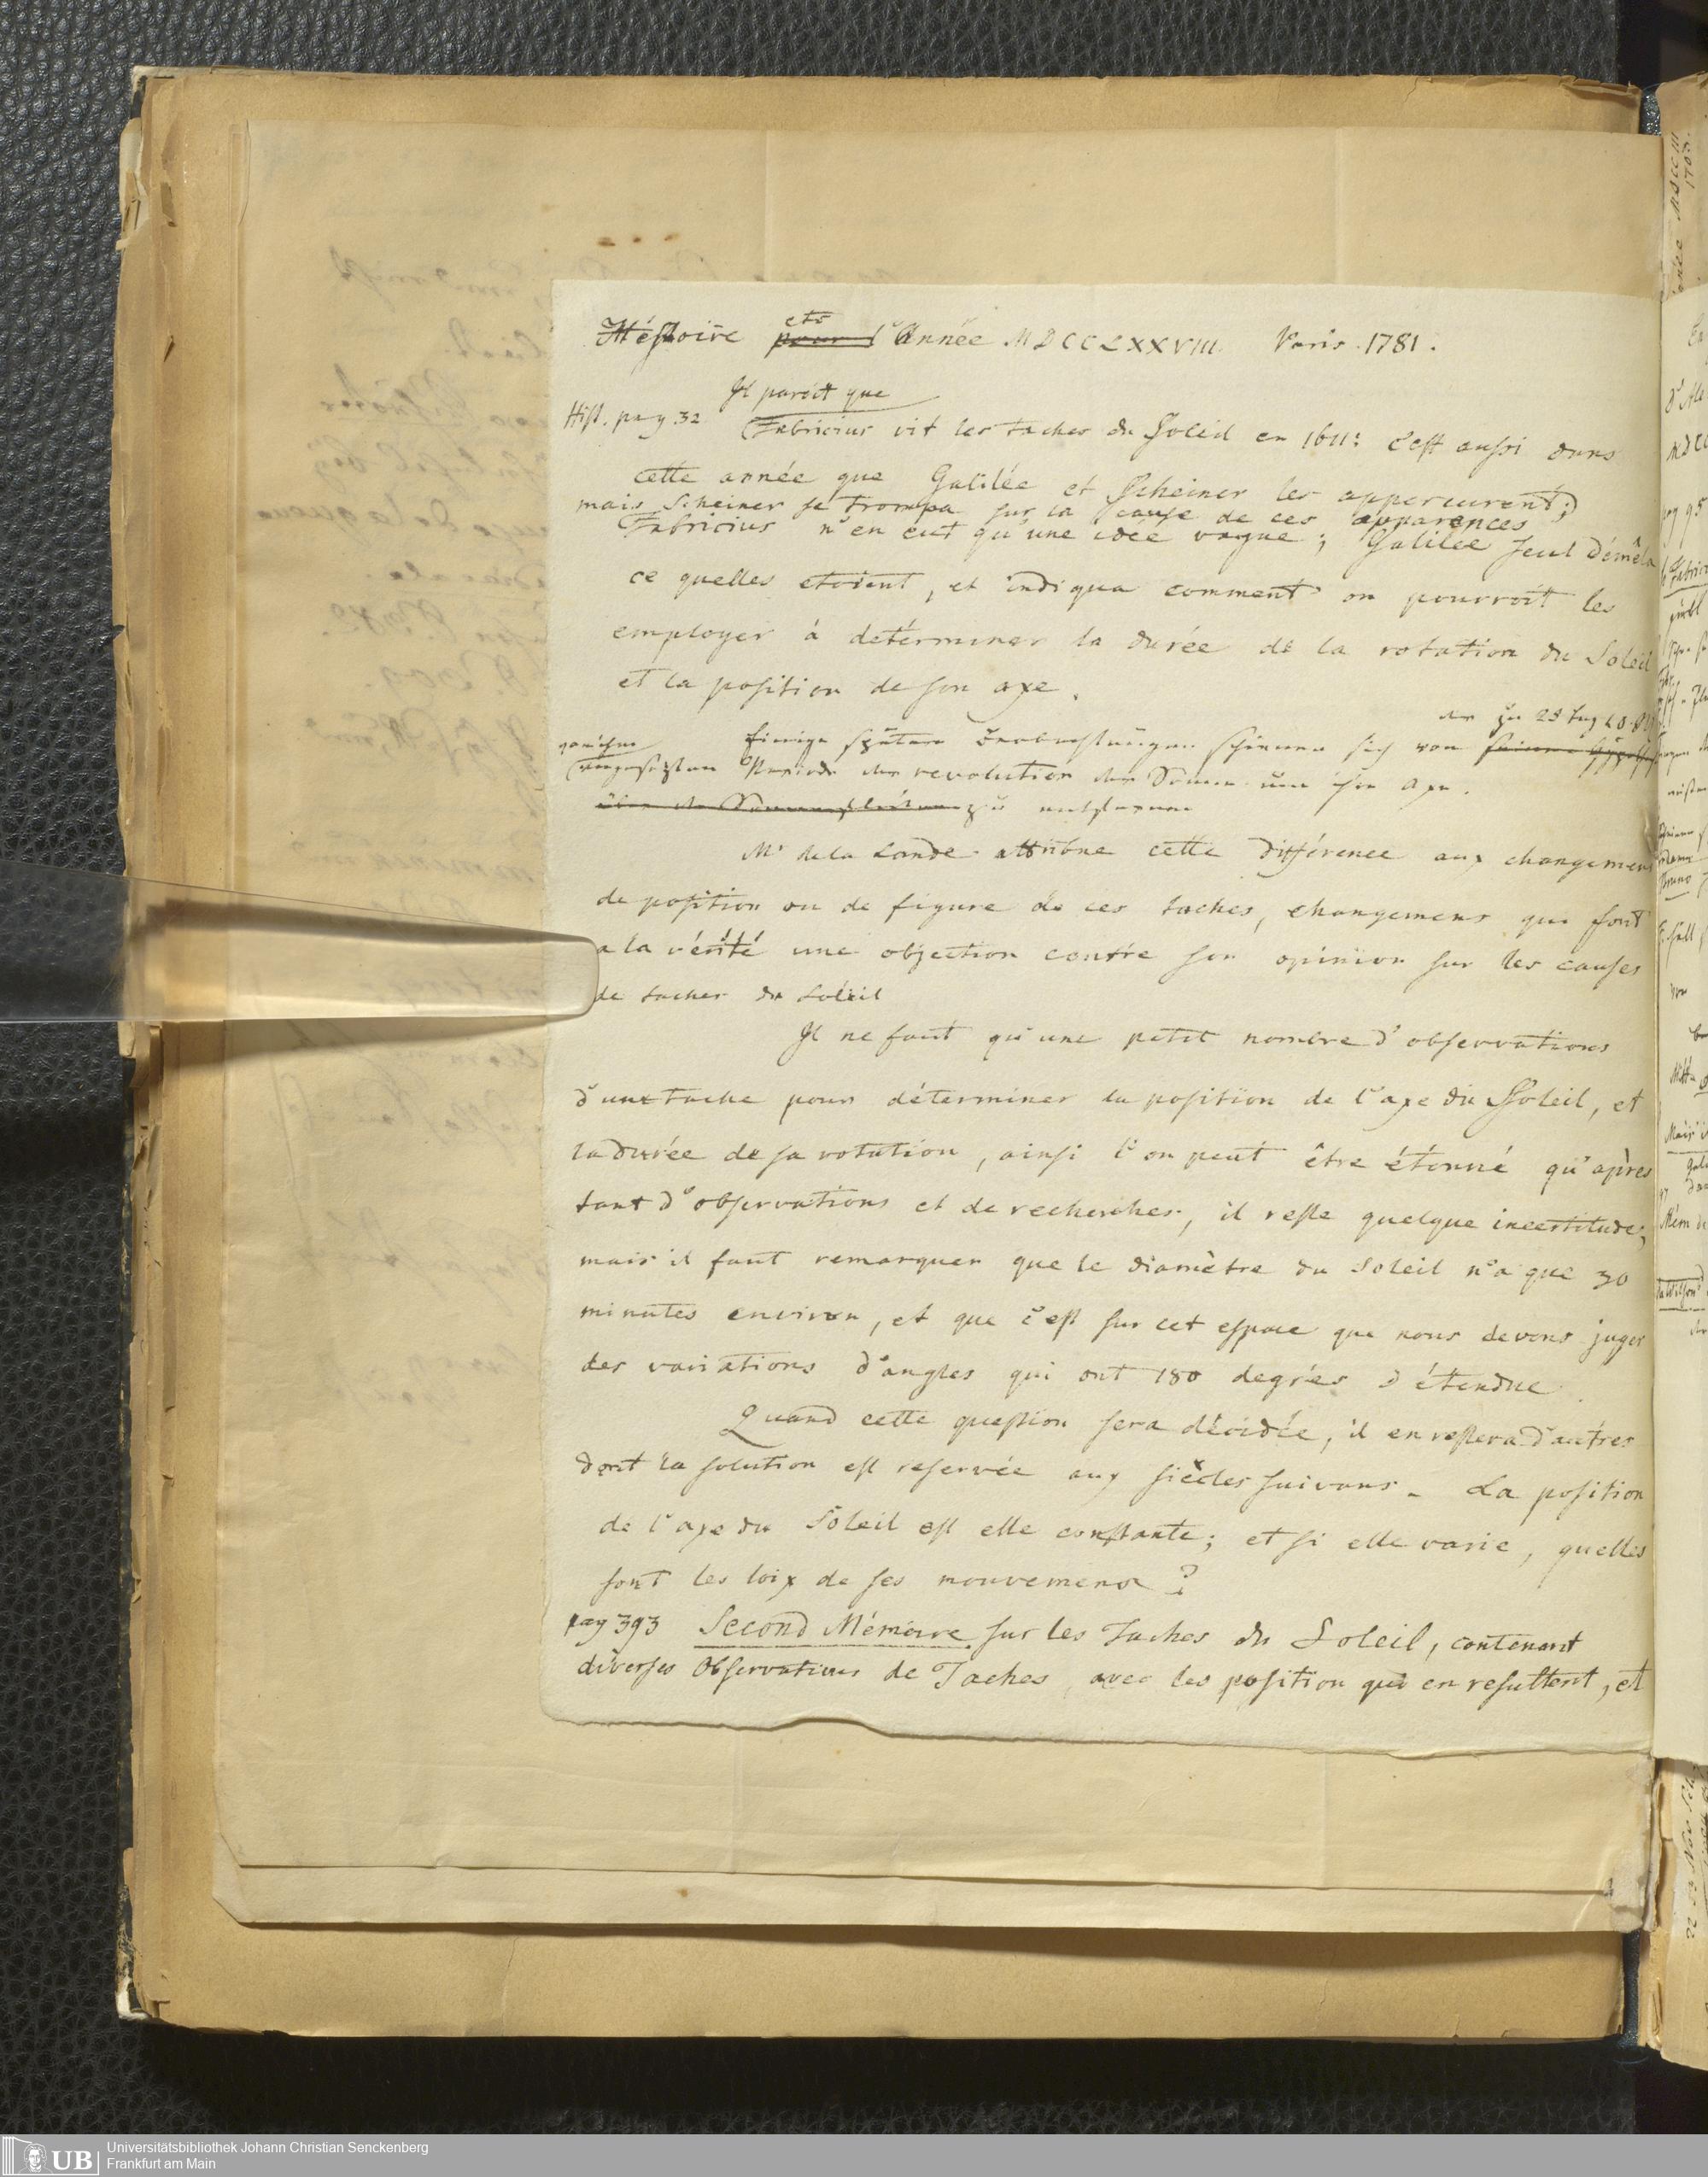 Histoire etc l'Année MDCCLXXVIII Paris 1781.
Il paroit que
Hist. pag. 32 Fabricius vit les taches du Soleil en 1611: c'est aussi dans
cette année que Galilée et Scheiner les appercurent;
mais Scheiner se trompa sur la cause de ces apparences
Fabricius n'en eut qu'une idée vague; Galilée seul démêla
ce quelles etoient, et indiqua comment on pourroit les
employer à determiner la durée de la rotation du Soleil
et la position de son axe.
der zu 25 Tag 10
Einige spätere Beobachtungen schienen sich von
angesetzten Periode der revolution der Sonne um ihre Axe.
zu entfernen
Mr de la Lande attribue cette différence aux changemens
de position ou de figure de ces taches, changemens qui font
a la vérité une objection contre son opinion sur les causes
de taches du Soleil
Il ne faut qu'une petit nombre d'observations
d'une tache pour déterminer la position de l'axe du Soleil, et
la durée de sa rotation, ainsi l'on peut être étonné qu'après
tant d'observations et de recherches, il reste quelque incertitude;
mais il faut remarquer que le diamètre du Soleil n'a que 30
minutes environ, et que c'est sur cet espace que nous devons juger
des variations d'angles qui ont 180 degrés d'étendue.
Quand cette question sera décidée, il en restera d'autres
dont la solution est reservée aux siècles suivans. La position
de l'axe du Soleil est elle constante; et si elle varie, quelles
sont les loix de ses mouvemens?
pag 393 Second Mémoire sur les Taches du Soleil, contenant
diverses Observations de Taches avec les position qui en resultent, et
UB Universitätsbibliothek Johann Christian Senckenberg
Frankfurt am Main